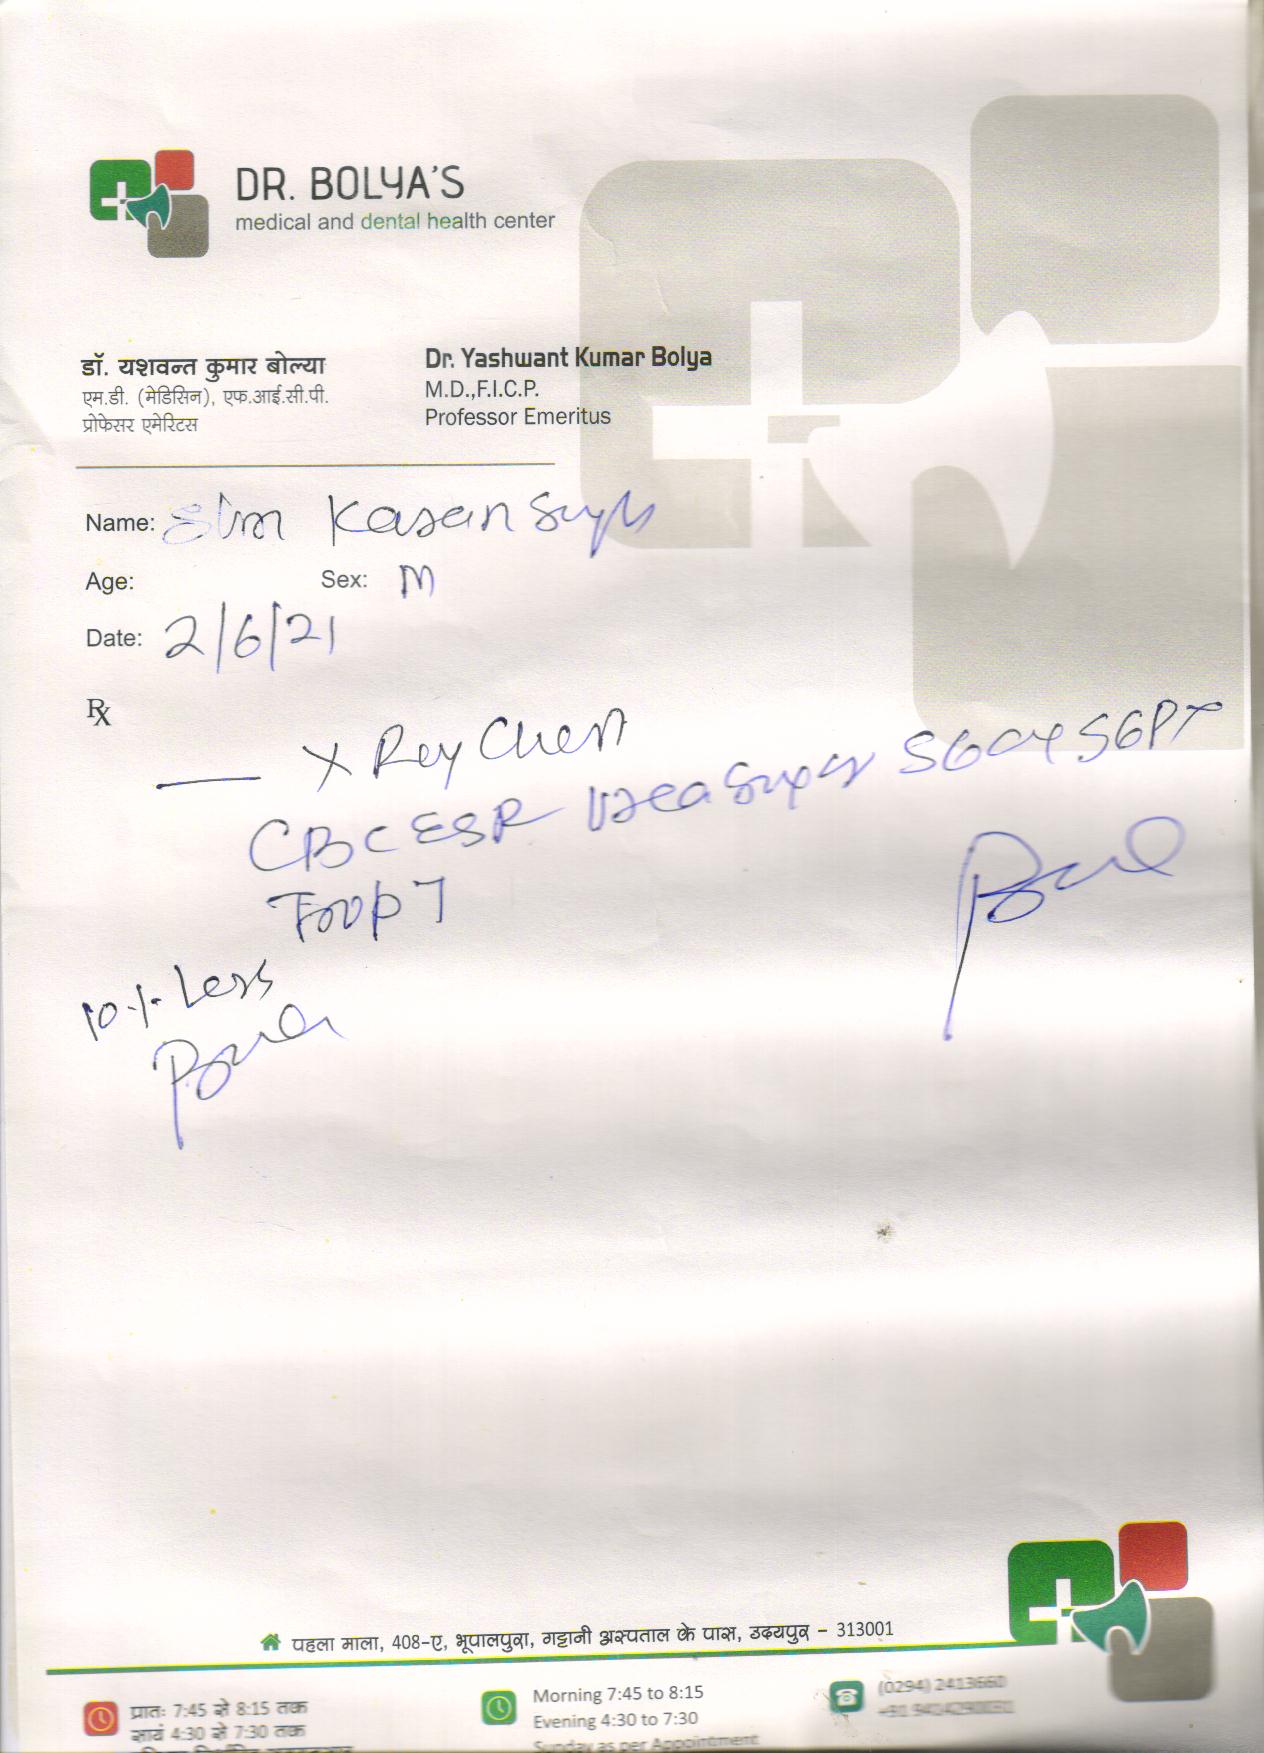 DR. BOLYA'S
medical and dental health center
डॉ. यशवन्त कुमार बोल्या
एम.डी. (मेडिसिन), एफ.आई.सी.पी.
प्रोफेसर एमेरिटस
Dr. Yashwant Kumar Bolya
M.D.,F.I.C.P.
Professor Emeritus
Name: Karan Singh
Age: Sex: M
Date: 2/6/21
Rx
X Ray Chest
CBC ESR Urea Sugar SGOT SGPT
Trop T
10% Less
पहला माला, 408-ए, भूपालपुरा, गट्टानी अस्पताल के पास, उदयपुर - 313001
प्रातः 7:45 से 8:15 तक
सायं 4:30 से 7:30 तक
Morning 7:45 to 8:15
Evening 4:30 to 7:30
Sunday as per Appointment
(0294) 2413660